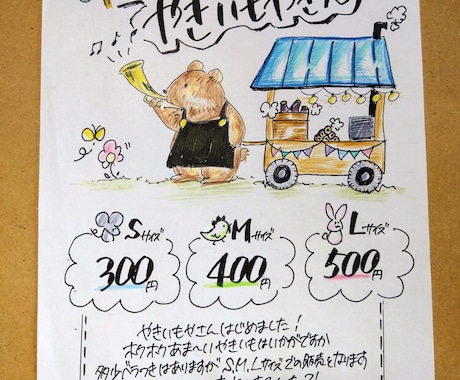 やきいもやさん
Sサイズ
300円
Mサイズ
400円
Lサイズ
500円
やきいもやさんはじめました！
ホクホクあま〜いやきいもはいかがですか
多少バラつきはありますが、S,M,Lサイズでの販売となります